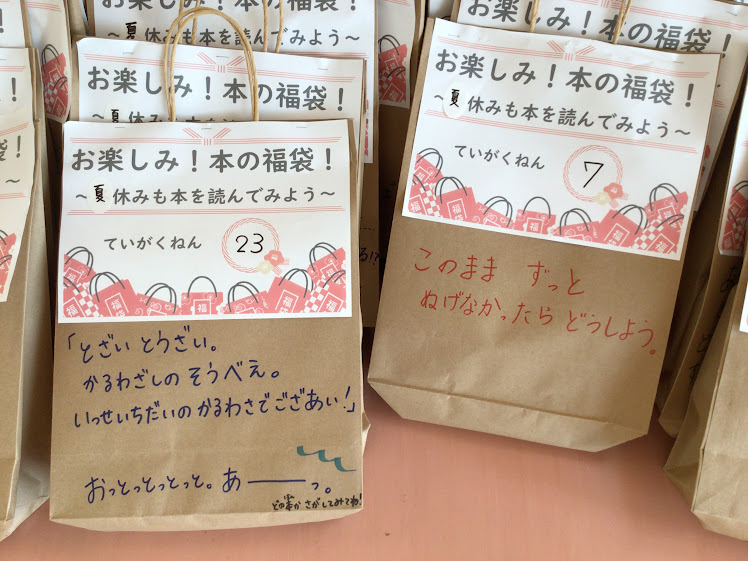 お楽しみ！本の福袋！
～夏休みも本を読んでみよう～
お楽しみ！本の福袋！
～夏休みも本を読んでみよう～
ていがくねん
23
福袋
「とざい とうざい。
かるわざしの そうべえ。
いっせいちだいの かるわざでござあい！」
おっとっとっとっと。あ――っ。
どの本か さがしてみてね！
お楽しみ！本の福袋！
～夏休みも本を読んでみよう～
ていがくねん
7
福袋
このまま ずっと
ぬげなかったら どうしよう。